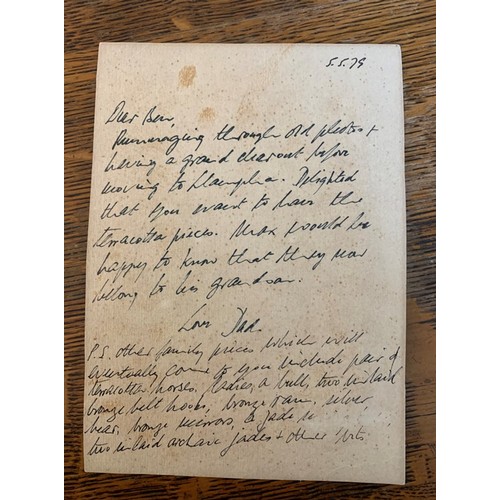 5.5.79
Dear Ben,
Rummaging through old photos +
having a grand clearout before
moving to Llangplha. Delighted
that you want to have the
terracotta pieces. Max would be
happy to know that they now
belong to his grandson.
Love Dad.
P.S. other family pieces which will
eventually come to you include pair of
terracotta horses, ladies, a bull, two inlaid
bronze belt hooks, bronze ram, silver
bear, bronze mirrors, a jade
two inlaid archaic jades + other